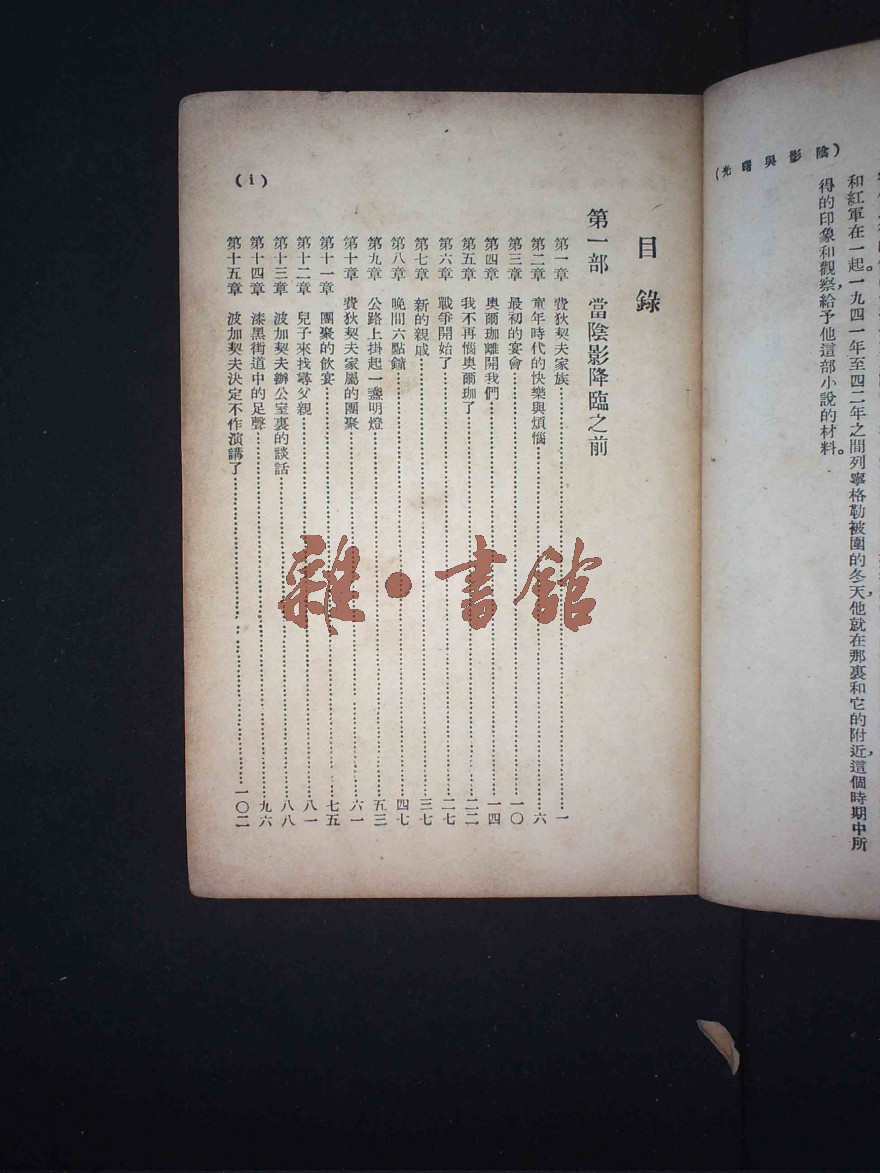 (光曙與影陰)
和紅軍在一起。一九四一年至四二年之間,列寧格勒被圍的冬天,他就在那裏和它的附近,這個時期中所
得的印象和觀察,給予他這部小說的材料。
目錄
第一部 當陰影降臨之前
第一章 費狄契夫家族 一
第二章 童年時代的快樂與煩惱 六
第三章 最初的宴會 一〇
第四章 奧爾珈離開我們 一四
第五章 我不再惱奧爾珈了 二二
第六章 戰爭開始了 二七
第七章 新的親戚 三七
第八章 晚間六點鐘 四七
第九章 公路上掛起一盞明燈 五三
第十章 費狄契夫家屬的團聚 六一
第十一章 團聚的飲宴 七五
第十二章 兒子來找尋父親 八一
第十三章 波加契夫辦公室裏的談話 八八
第十四章 漆黑街道中的足聲 九六
第十五章 波加契夫決定不作演講了 一〇二
(i)
雜·書館